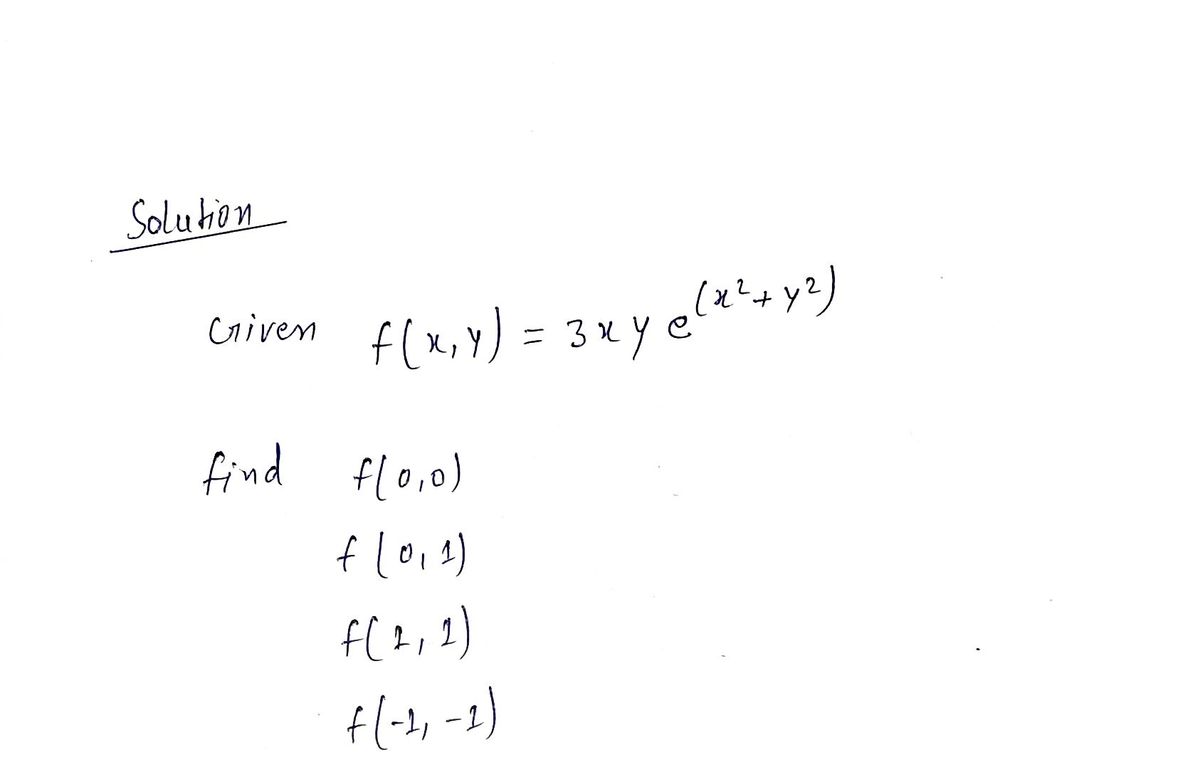 Solution
Given f(x,y) = 3xy e^(x²+y²)
find f(0,0)
f(0,1)
f(1,1)
f(-1,-1)